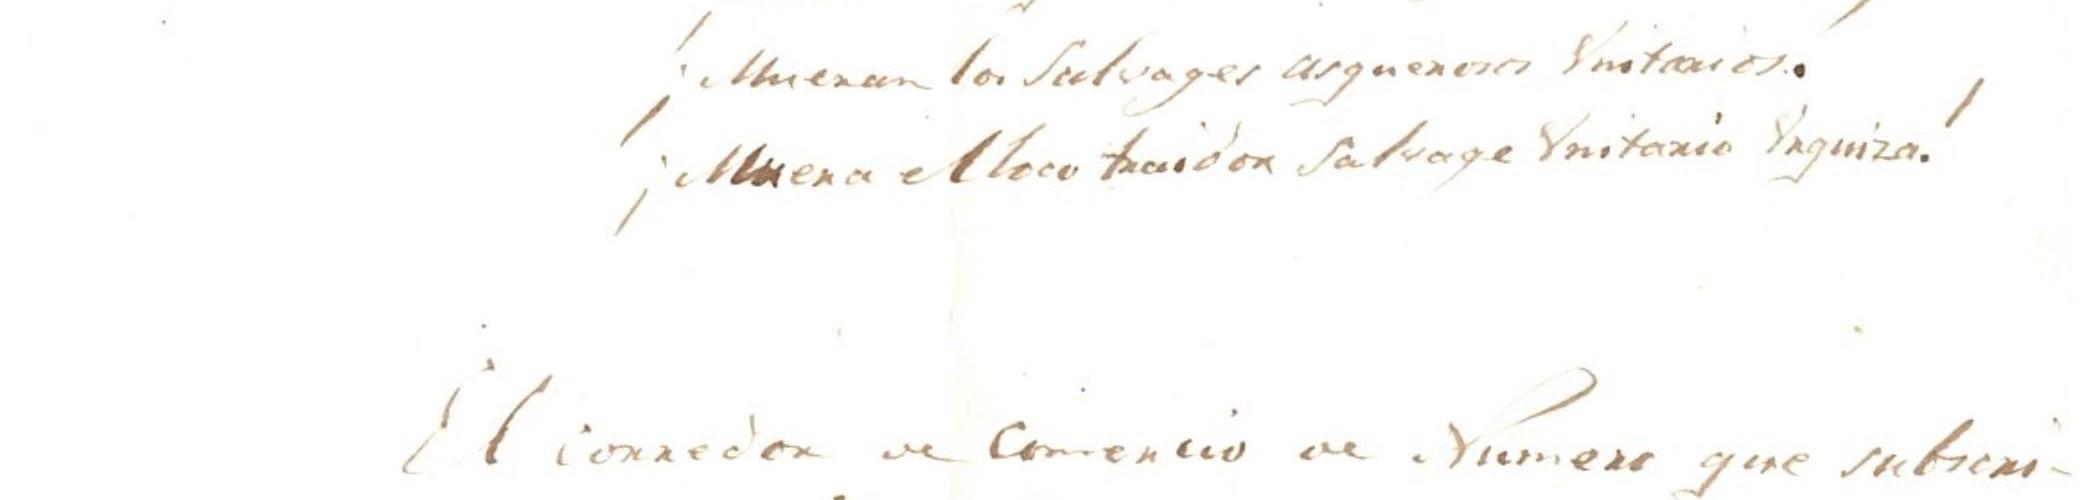 ¡Mueran los Salvages asquerosos Vnitarios.
¡Muera el loco traidor Salvage Vnitario Vrquiza!
El corredor de Comercio de Numero que subscri-